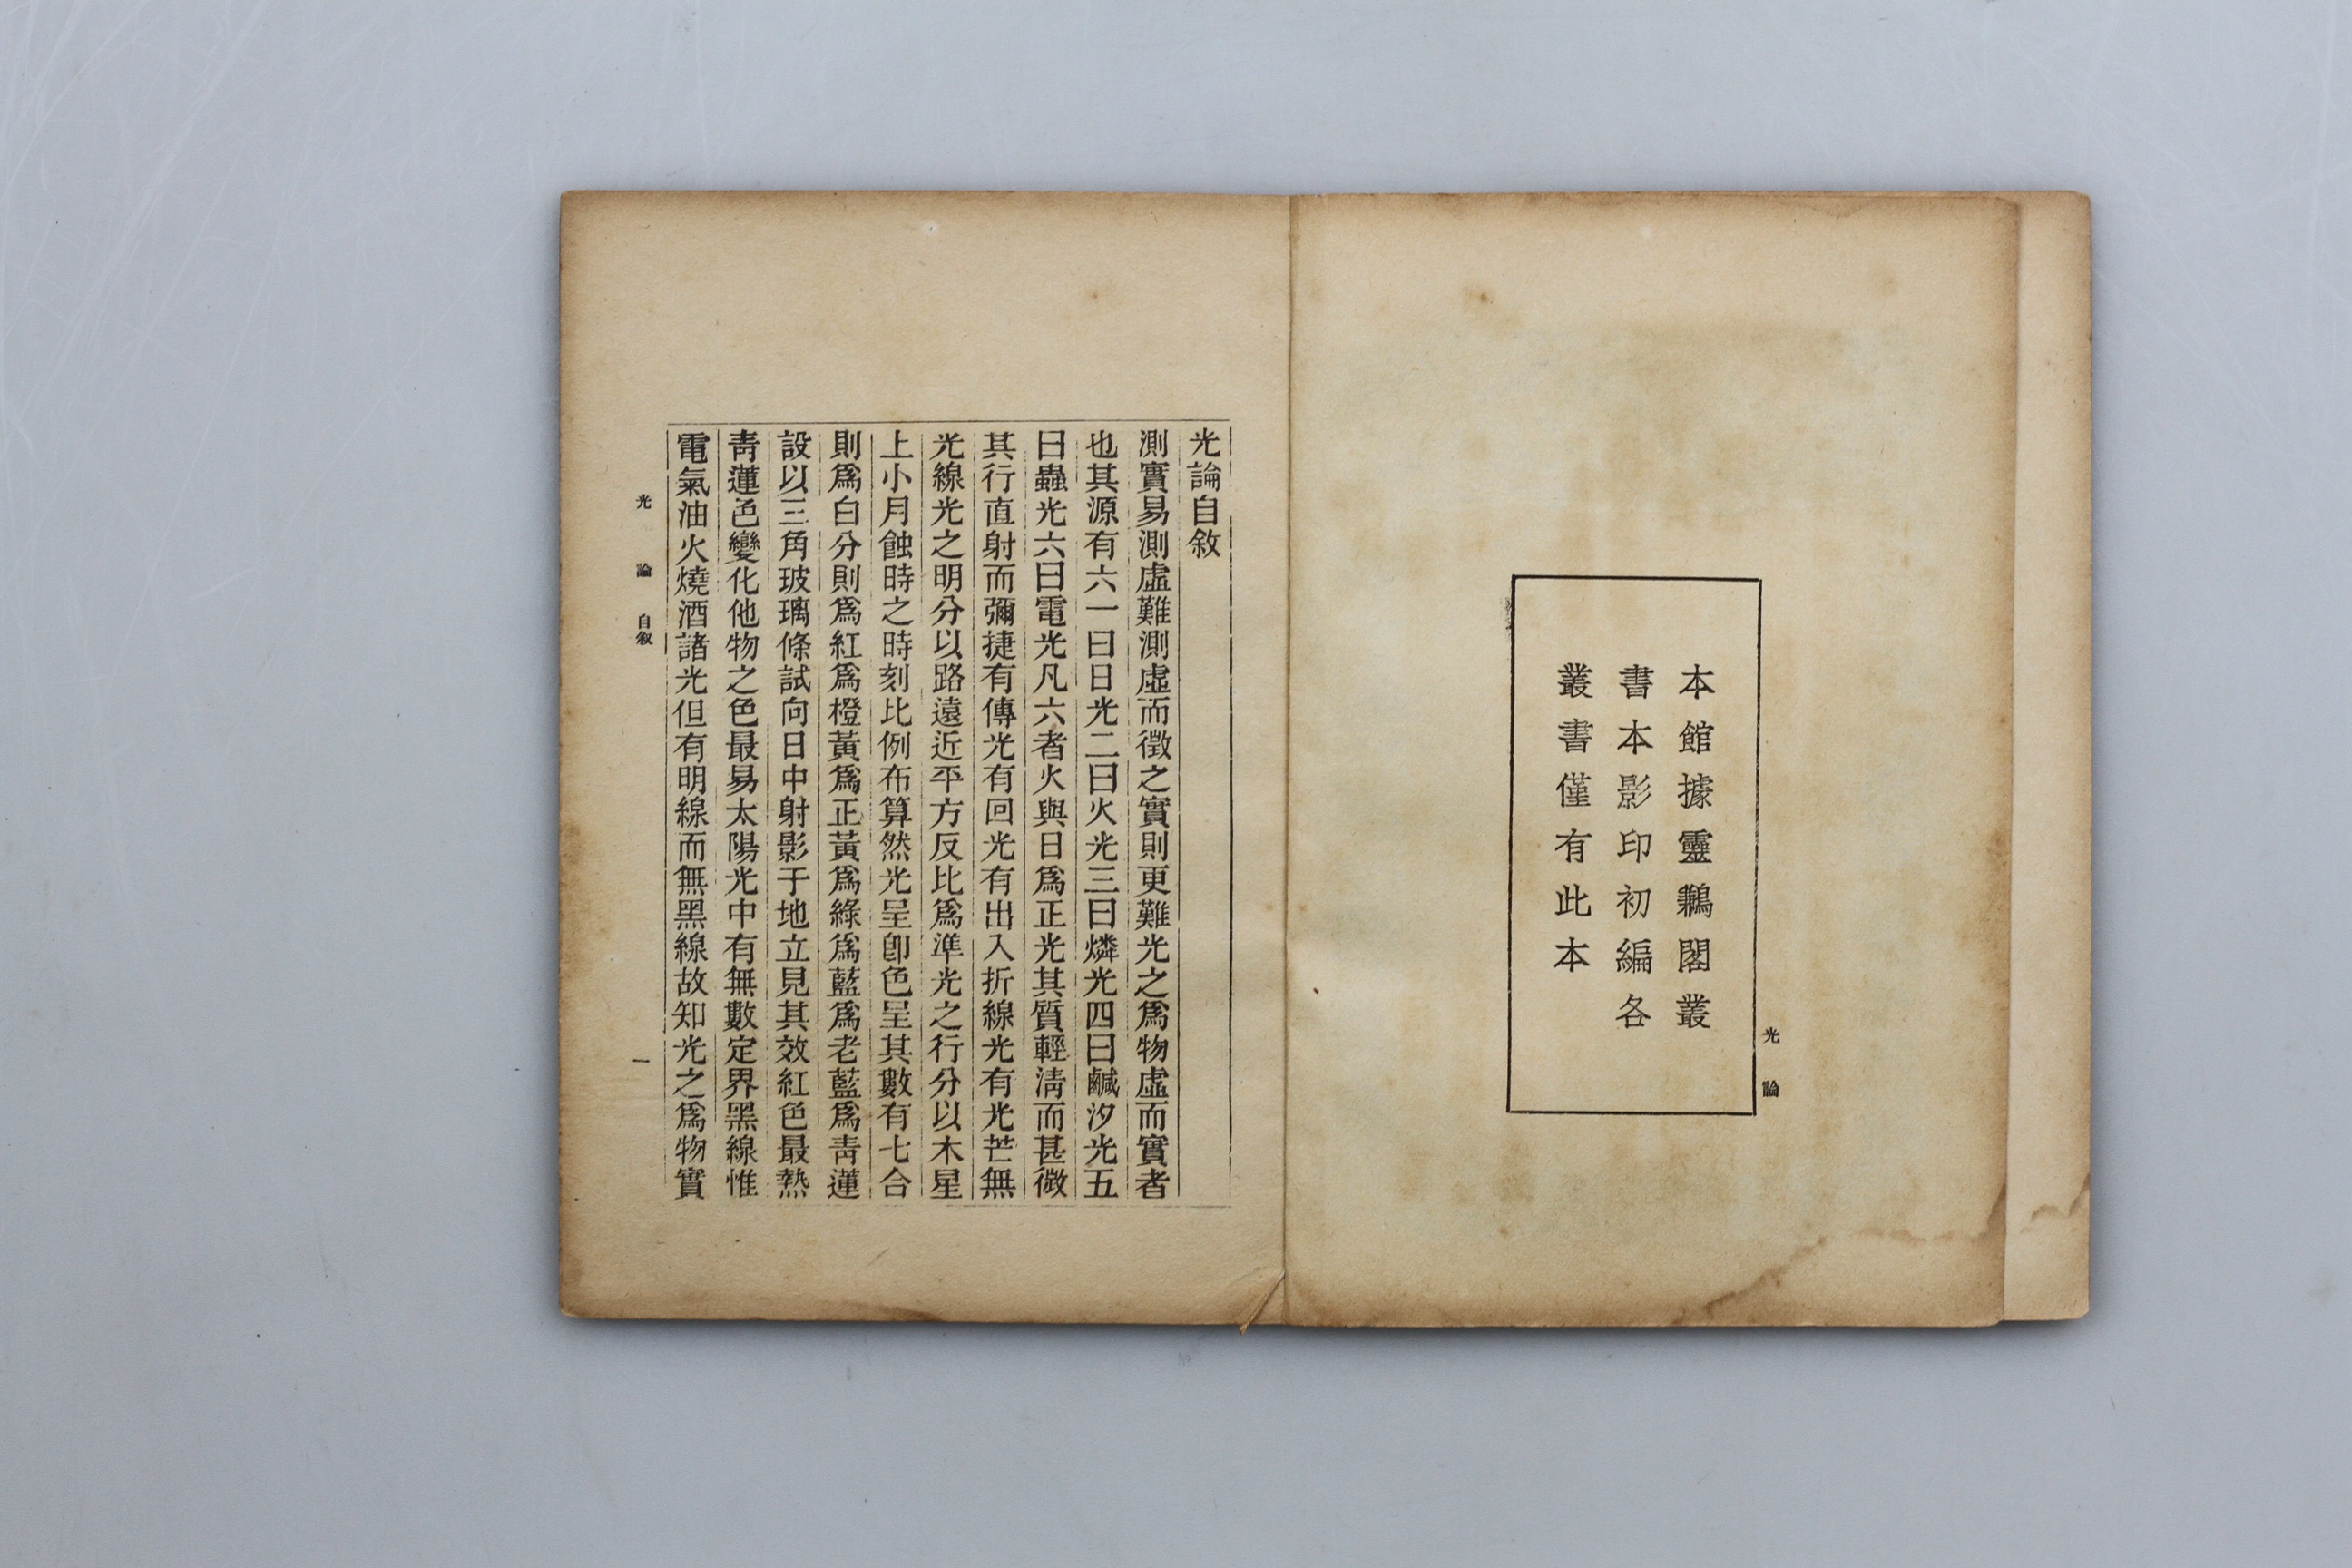 光論
本館據靈鶼閣叢
書本影印初編各
叢書僅有此本
光論自敘
測實易測虛難測虛而徵之實則更難光之爲物虛而實者
也其源有六一曰日光二曰火光三曰燐光四曰鹹汐光五
曰蟲光六曰電光凡六者火與日爲正光其質輕淸而甚微
其行直射而彌捷有傳光有回光有出入折線光有光芒無
光線光之明分以路遠近平方反比爲準光之行分以木星
上小月蝕時之時刻比例布算然光呈卽色呈其數有七合
則爲白分則爲紅爲橙黃爲正黃爲綠爲藍爲老藍爲靑蓮
設以三角玻璃條試向日中射影于地立見其效紅色最熱
靑蓮色變化他物之色最易太陽光中有無數定界黑線惟
電氣油火燒酒諸光但有明線而無黑線故知光之爲物實
光論 自敘 一